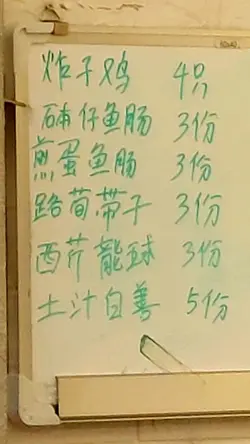 炸子鸡 4只
砵仔鱼肠 3份
煎蛋鱼肠 3份
路荀带子 3份
西芹龍球 3份
土汁白善 5份